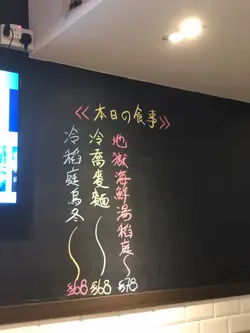 《本日の食事》
地獄海鮮湯稻庭
$78
冷蕎麥麵
$68
冷稻庭烏冬
$68